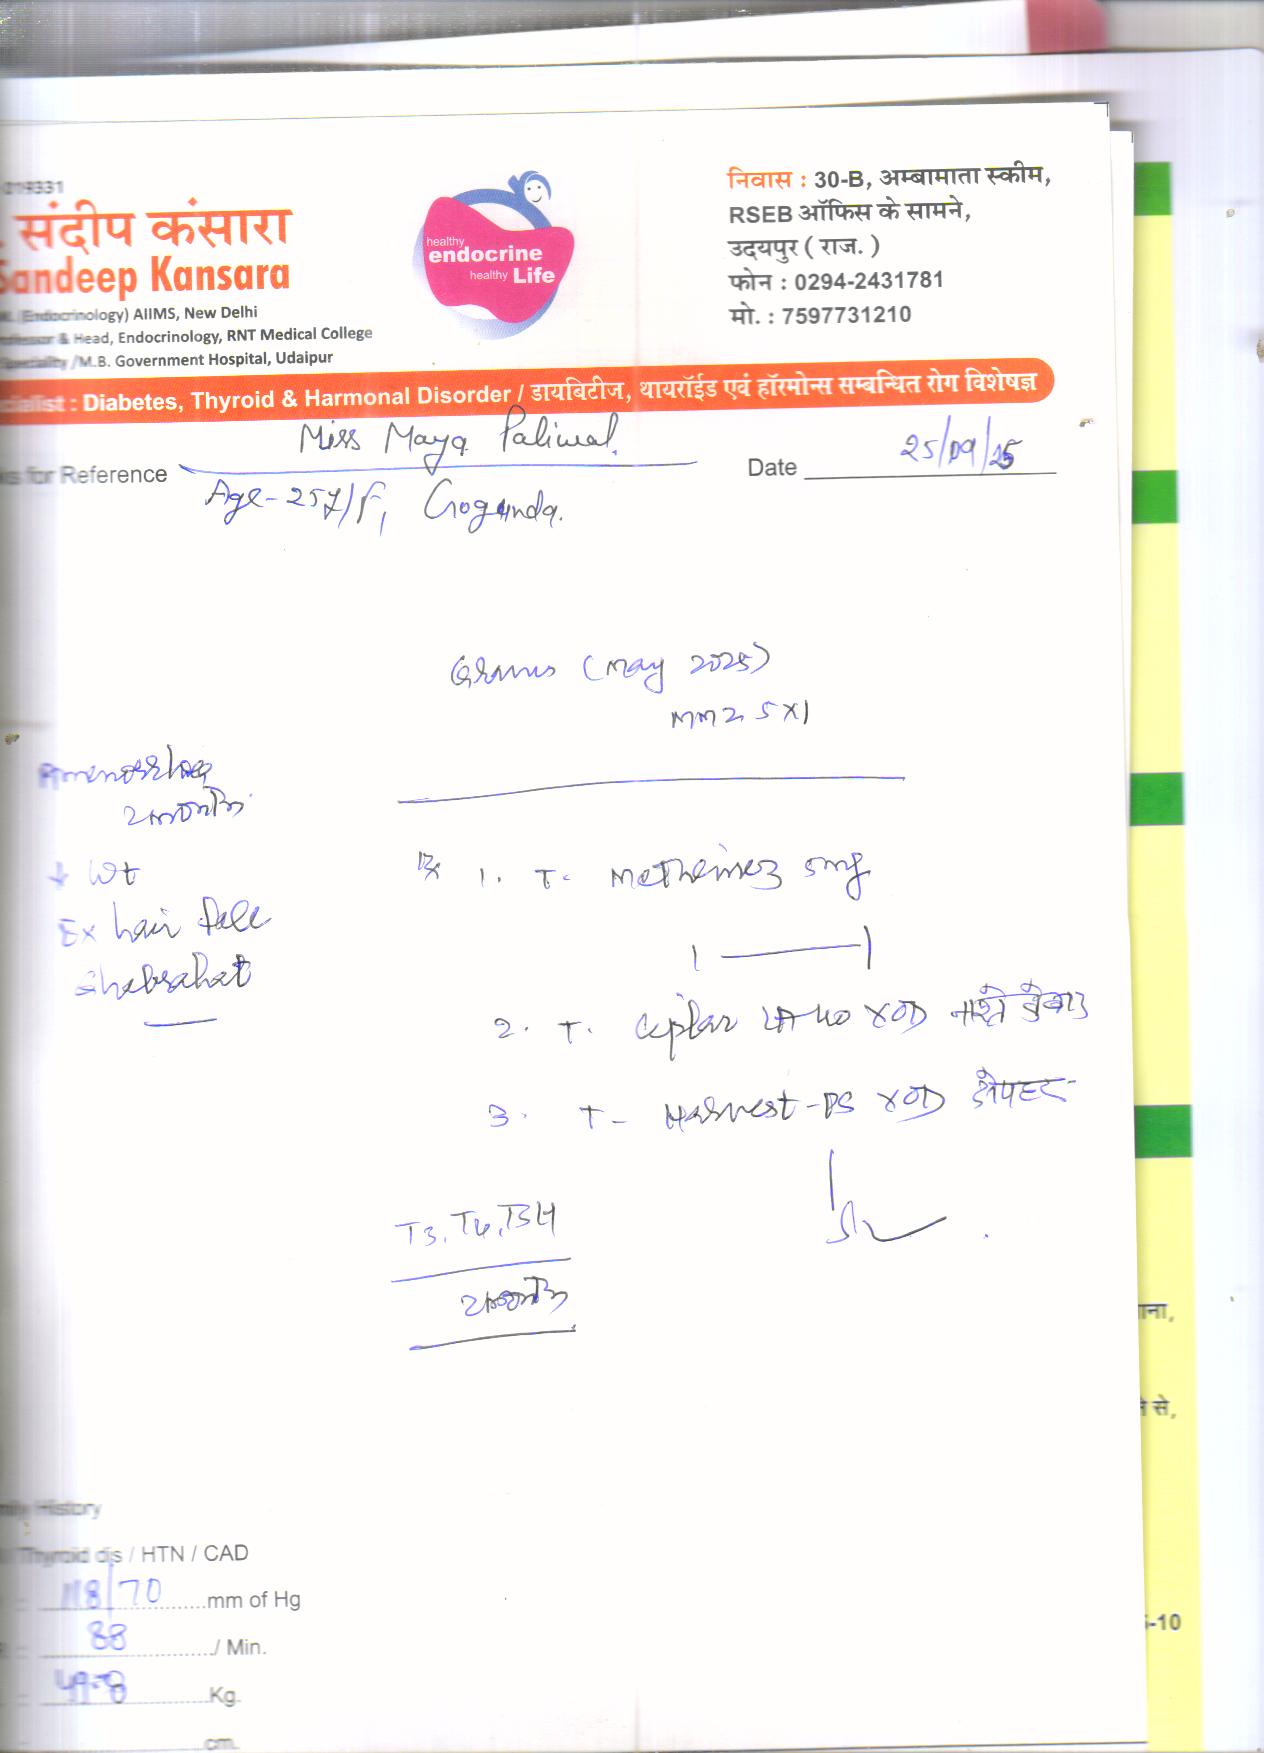 019331
. संदीप कंसारा
Sandeep Kansara
(Endocrinology) AIIMS, New Delhi
& Head, Endocrinology, RNT Medical College
Speciality /M.B. Government Hospital, Udaipur
healthy
endocrine
healthy Life
निवास : 30-B, अम्बामाता स्कीम,
RSEB ऑफिस के सामने,
उदयपुर ( राज. )
फोन : 0294-2431781
मो. : 7597731210
: Diabetes, Thyroid & Harmonal Disorder / डायबिटीज, थायरॉईड एवं हॉरमोन्स सम्बन्धित रोग विशेषज्ञ
for Reference Miss Maya Paliwal. Date 25/09/25
Age-25y/F, Gogunda.
(May 2025)
MMZ 5x1
Amenorrhea
2 months
↓ Wt
Ex hair fall
Ghabrahat
Rx 1. T. Methimez 5mg
1 — 1
2. T. Ciplar LA 40 xOD नाश्ते
3. T- Harvest-PS xOD दोपहर
T3, T4, TSH
2 months
History
Thyroid dis / HTN / CAD
118/70 mm of Hg
88 / Min.
49.8 Kg.
cm.
ाना,
से,
-10